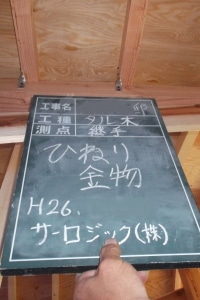 工事名 邸
工種 タル木
測点 継手
ひねり
金物
H26.
サーロジック(株)